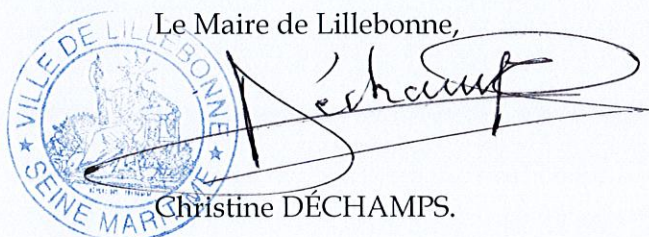 Le Maire de Lillebonne,
VILLE DE LILLEBONNE
★ SEINE MARITIME ★
Déchamps
Christine DÉCHAMPS.